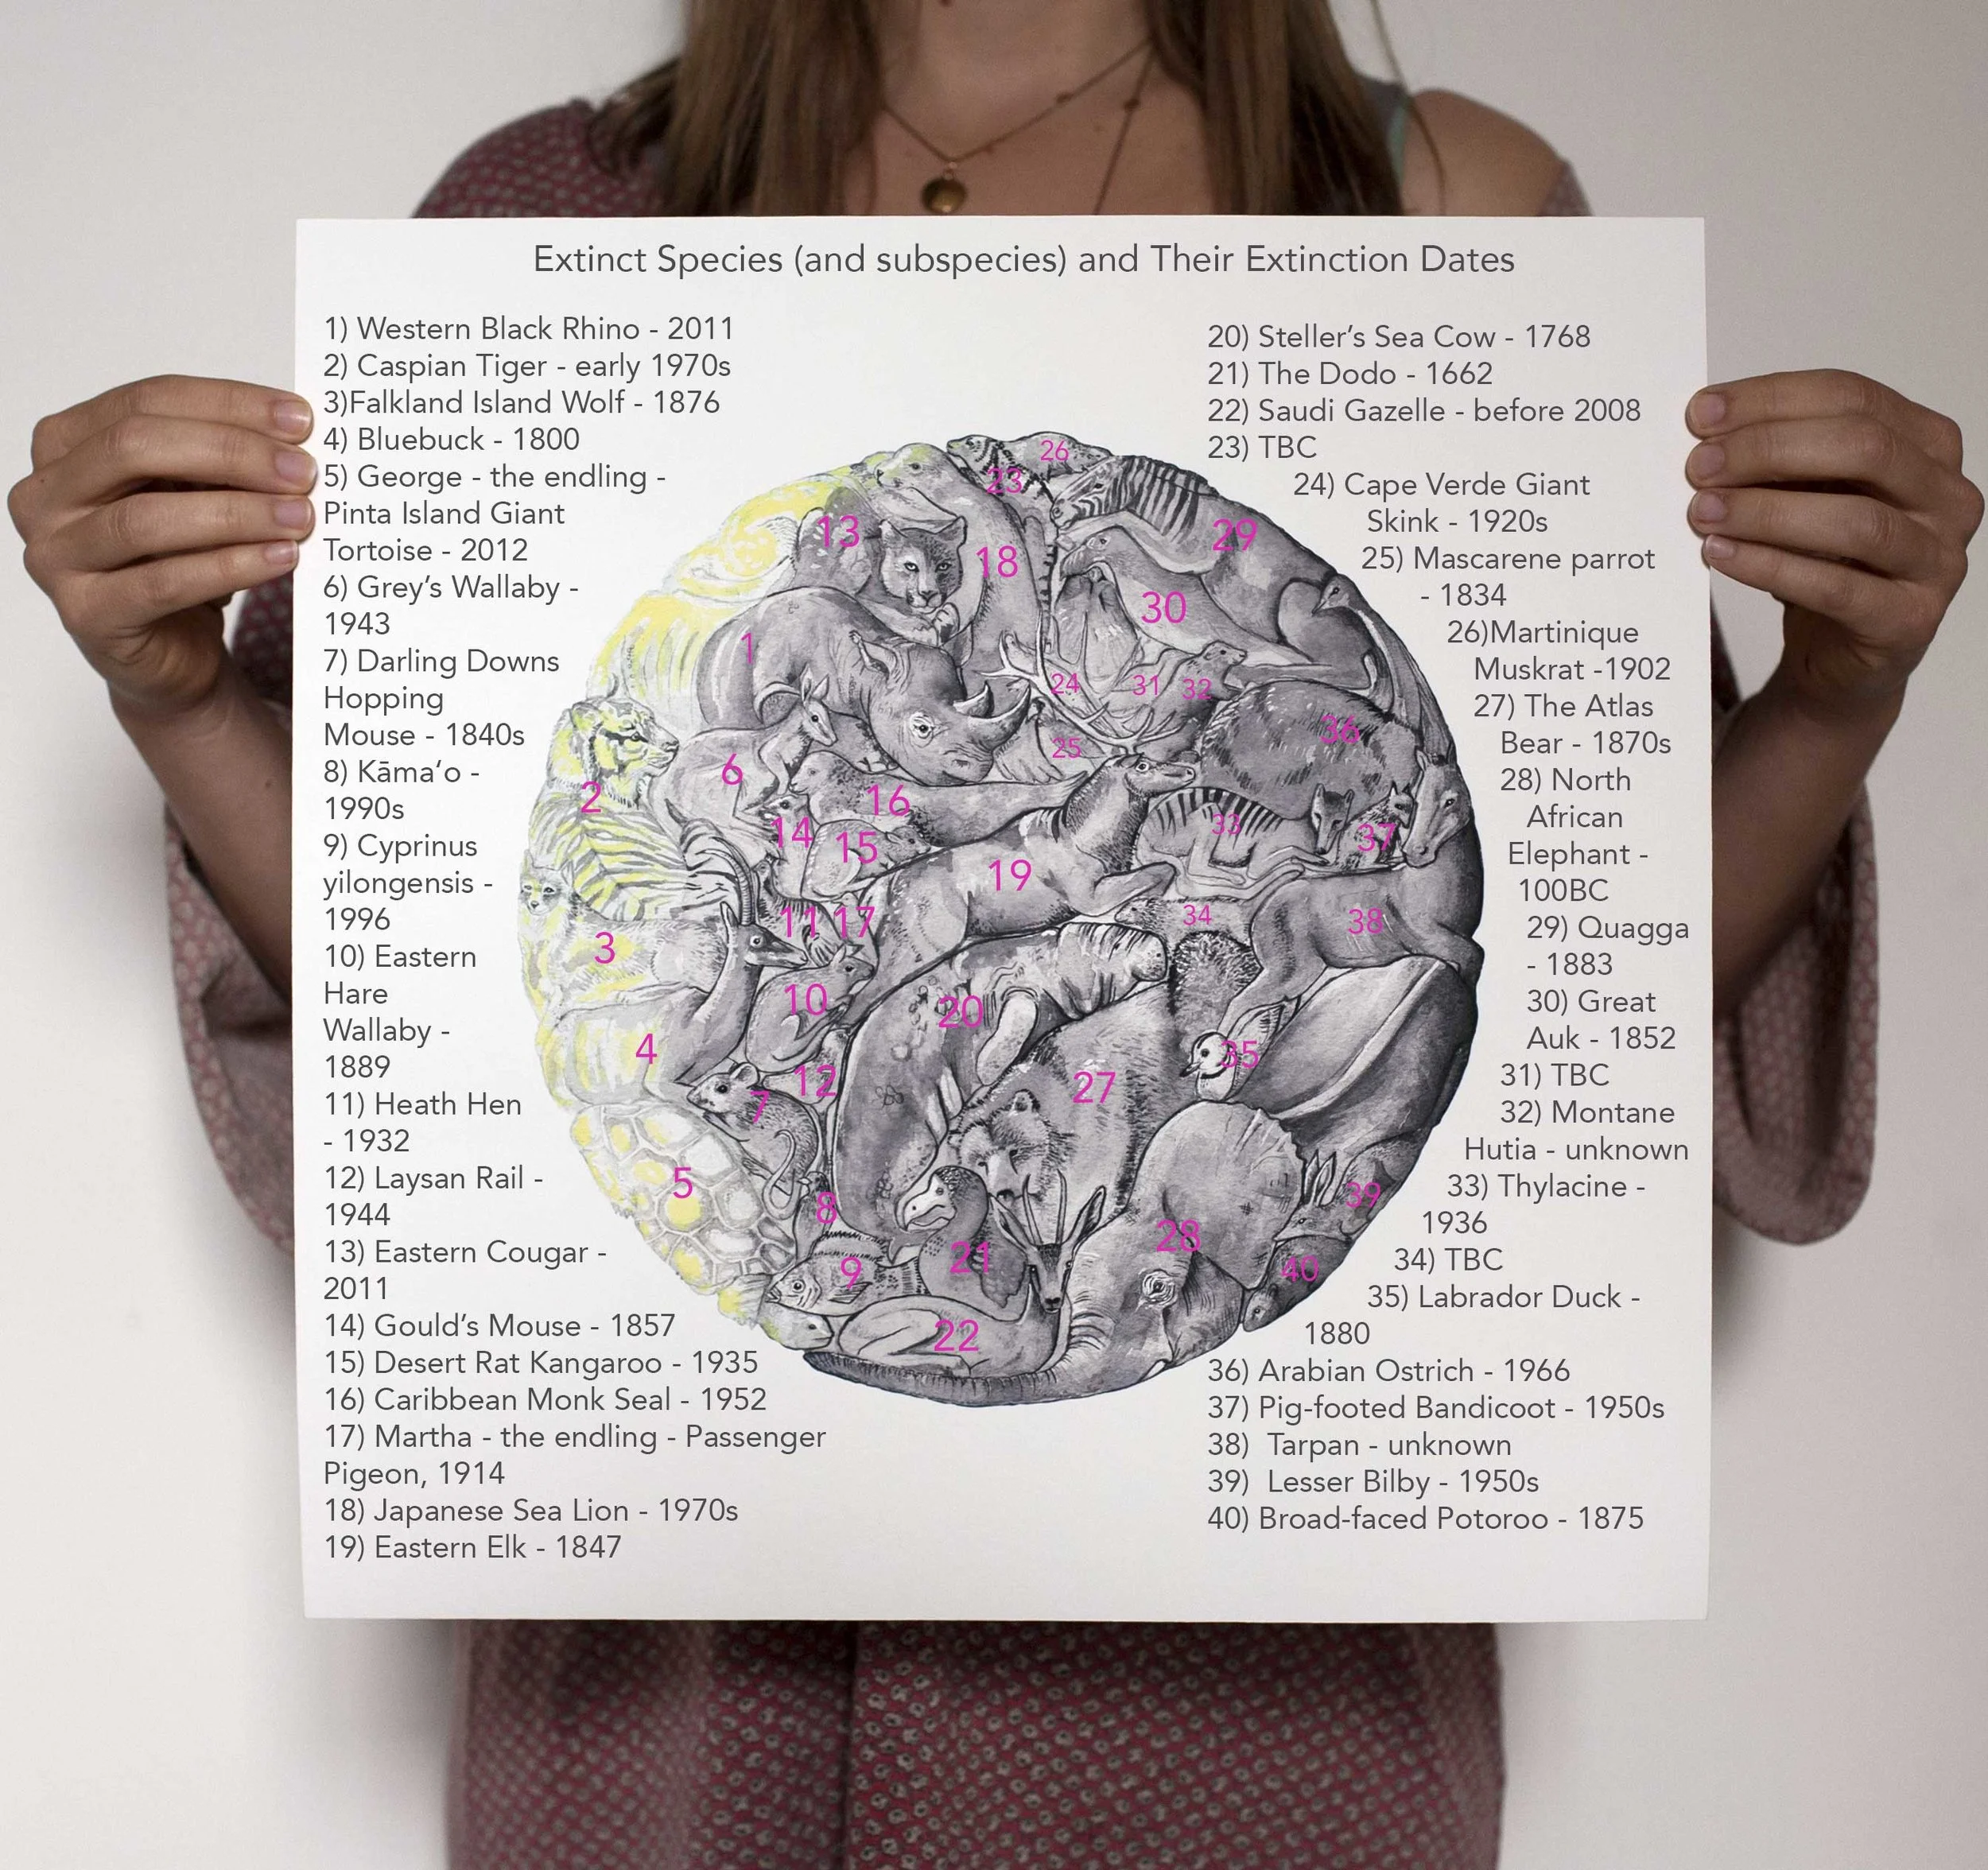 Extinct Species (and subspecies) and Their Extinction Dates
1) Western Black Rhino - 2011
2) Caspian Tiger - early 1970s
3)Falkland Island Wolf - 1876
4) Bluebuck - 1800
5) George - the endling -
Pinta Island Giant
Tortoise - 2012
6) Grey’s Wallaby -
1943
7) Darling Downs
Hopping
Mouse - 1840s
8) Kāmaʻo -
1990s
9) Cyprinus
yilongensis -
1996
10) Eastern
Hare
Wallaby -
1889
11) Heath Hen
- 1932
12) Laysan Rail -
1944
13) Eastern Cougar -
2011
14) Gould’s Mouse - 1857
15) Desert Rat Kangaroo - 1935
16) Caribbean Monk Seal - 1952
17) Martha - the endling - Passenger
Pigeon, 1914
18) Japanese Sea Lion - 1970s
19) Eastern Elk - 1847
26
23
13
18
29
30
1
24
31
32
36
25
6
2
16
14
15
33
37
19
11
17
34
38
3
10
20
4
35
12
27
7
5
39
8
28
21
40
9
22
20) Steller’s Sea Cow - 1768
21) The Dodo - 1662
22) Saudi Gazelle - before 2008
23) TBC
24) Cape Verde Giant
Skink - 1920s
25) Mascarene parrot
- 1834
26)Martinique
Muskrat -1902
27) The Atlas
Bear - 1870s
28) North
African
Elephant -
100BC
29) Quagga
- 1883
30) Great
Auk - 1852
31) TBC
32) Montane
Hutia - unknown
33) Thylacine -
1936
34) TBC
35) Labrador Duck -
1880
36) Arabian Ostrich - 1966
37) Pig-footed Bandicoot - 1950s
38) Tarpan - unknown
39) Lesser Bilby - 1950s
40) Broad-faced Potoroo - 1875